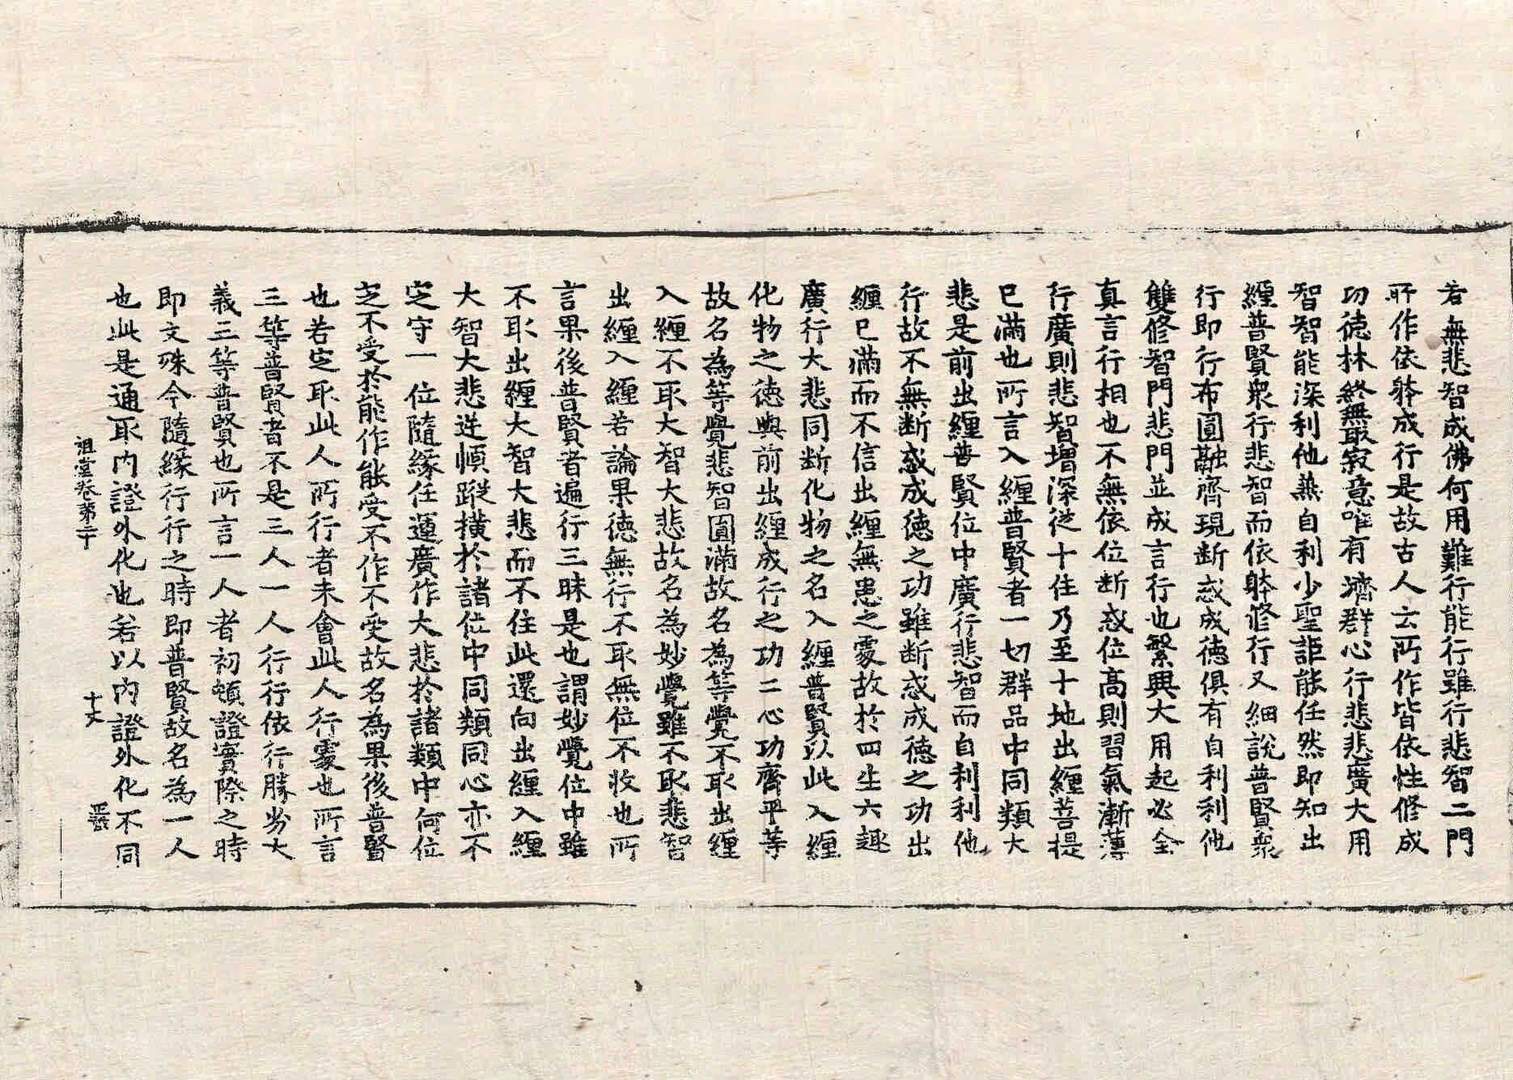 若無悲智成佛何用難行能行雖行悲智二門
所作依躰成行是故古人云所作皆依性修成
功徳林終無取寂意唯有濟群心行悲悲廣大用
智智能深利他兼自利少聖詎能任然即知出
纏普賢衆行悲智而依躰修行又細說普賢衆
行即行布圓融齊現断惑成徳俱有自利利他
雙修智門悲門並成言行也繁興大用起必全
真言行相也不無依位断惑位高則習氣漸薄
行廣則悲智增深從十住乃至十地出纏菩提
已滿也所言入纏普賢者一切群品中同類大
悲是前出纏普賢位中廣行悲智而自利利他
行故不無断惑成徳之功雖断惑成徳之功出
纏已滿而不信出纏無患之處故於四生六趣
廣行大悲同断化物之名入纏普賢以此入纏
化物之徳與前出纏成行之功二心功齊平等
故名為等覺悲智圓滿故名為等覺不取出纏
入纏不取大智大悲故名為妙覺雖不取悲智
出纏入纏若論果徳無行不取無位不收也所
言果後普賢者遍行三昧是也謂妙覺位中雖
不取出纏大智大悲而不住此還向出纏入纏
大智大悲逆順蹤橫於諸位中同類同心亦不
定守一位隨緣任運廣作大悲於諸類中何位
之不受於能作能受不作不受故名為果後普賢
也若定取此人所行者未會此人行處也所言
三等普賢者不是三人一人行行依行勝劣大
義三等普賢也所言一人者初頓證實際之時
即文殊今隨緣行行之時即普賢故名為一人
也此是通取内證外化也若以内證外化不同
祖堂卷第二十 十丈